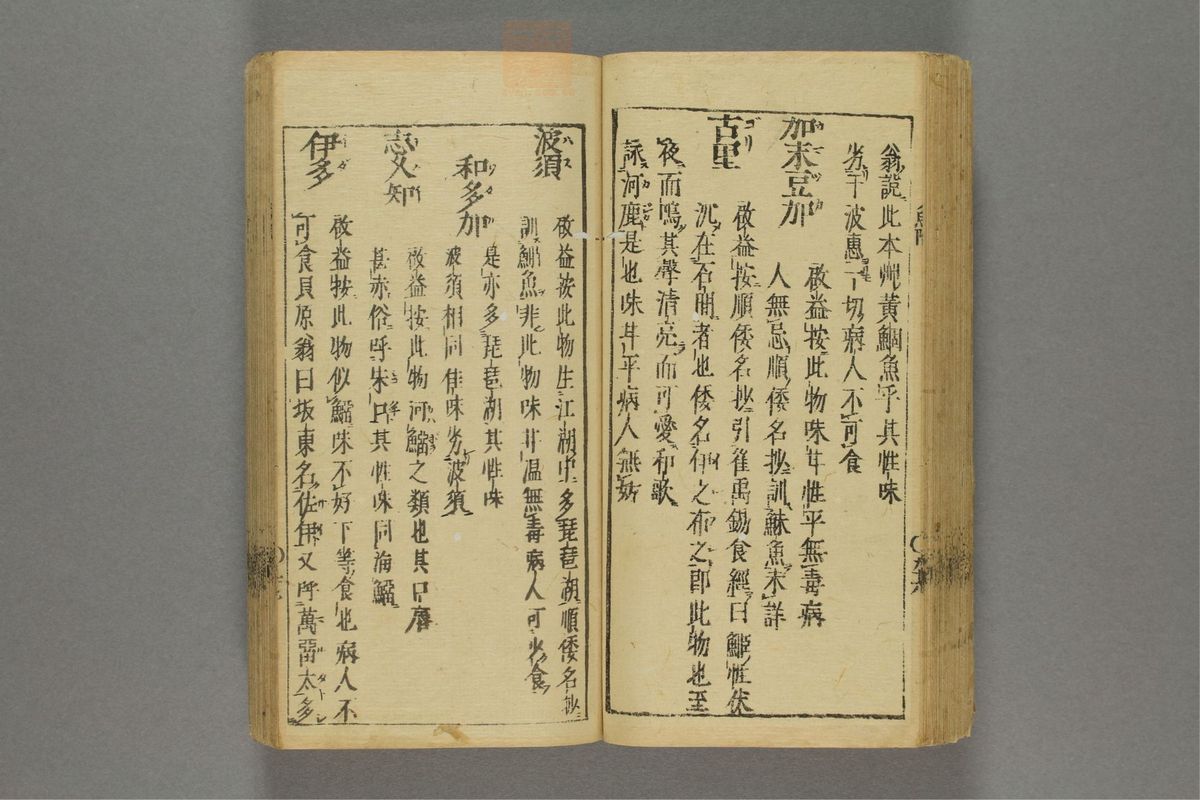 翁説此本州黄鯝魚乎其性味
劣于波惠一切病人不可食
加末豆加
啓益按此物味甘性平無毒病
人無忌順倭名抄訓魚未詳
古里
啓益按順倭名抄引崔禹錫食經曰性伏
沉在石間者也倭名伊之布之即此物也至
夜而鳴其聲清亮而可愛和歌
詠河鹿是也味甘平病人無妨
波須
啓益按此物生江湖中多琵琶湖順倭名抄
訓魚非此物味甘温無毒病人可少食
和多加
是亦多琵琶湖其性味
波須相同佳味劣波須
志久知
啓益按此物河鯔之類也其口唇
甚赤俗呼朱口其性味同海鯔
伊多
啓益按此物似鯔味不好下等食也病人不
可食貝原翁曰坂東名佐伊又呼萬留太多